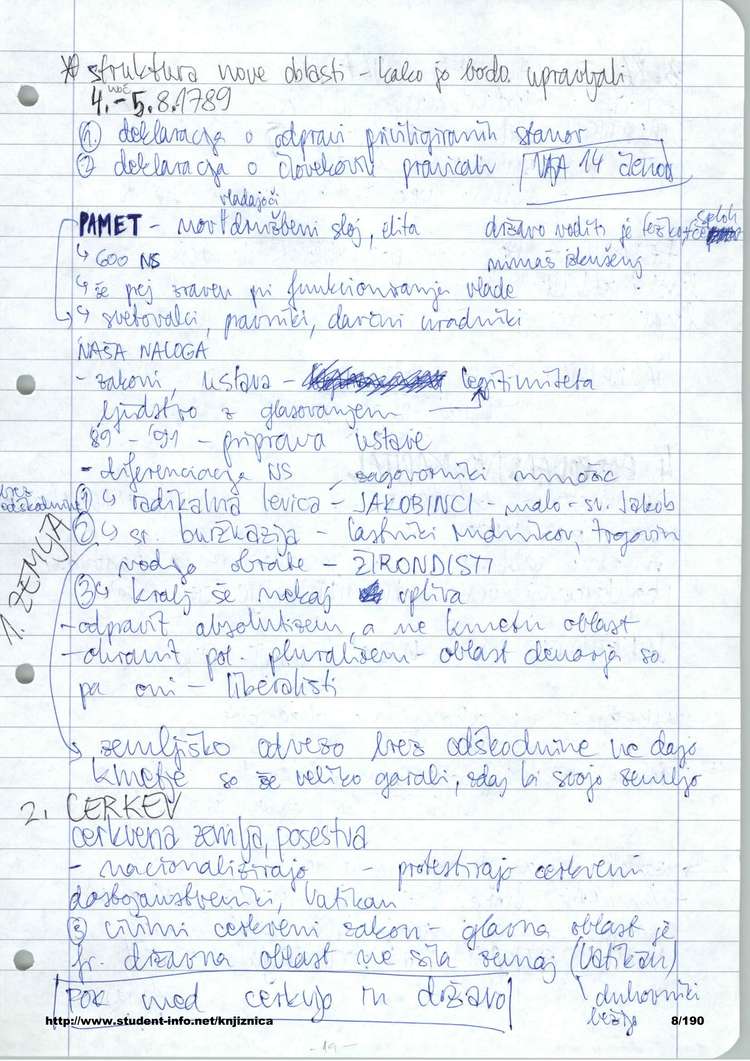 * struktura nove oblasti - kako jo bodo upravljali
noč
4.-5.8.1789
1. deklaracija o odpravi priviligiranih stanov
2 deklaracija o človekovih pravicah VAJA 14 členov
vladajoči
PAMET - novi družbeni sloj, elita državo voditi je težko če sploh
nimaš izkušenj
↳ 600 NS
↳ že prej zraven pri funkcioniranju vlade
↳ svetovalci, pravniki, davčni uradniki
NAŠA NALOGA
- zakoni, ustava - legitimiteta
ljudstvo z glasovanjem
89 - '91 - priprava ustave
- diferenciacija NS zagovorniki množic
brez odškodnine
1 ↳ radikalna levica - JAKOBINCI - malo - sv. Jakob
2 ↳ sr. buržoazija - lastniki rudnikov, trgovin
vodijo obrate - ŽIRONDISTI
1. ZEMLJA
3 ↳ kralj še nekaj vpliva
- odpravit absolutizem, a ne kmetu oblast
- ohranit pol. pluralizem - oblast denarja so
pa oni - liberalisti
zemljiško odvezo brez odškodnine ne dajo
kmetje so že veliko garali, zdaj bi svojo zemljo
2. CERKEV
cerkvena zemlja, posestva
- nacionalizirajo - protestirajo cerkveni
dostojanstveniki, Vatikan
3 civilni cerkveni zakon - glavna oblast je
fr. državna oblast ne sila zunaj (Vatikan)
spor med cerkvijo in državo duhovniki
bežijo
http://www.student-info.net/knjiznica 8/190
- 19 -